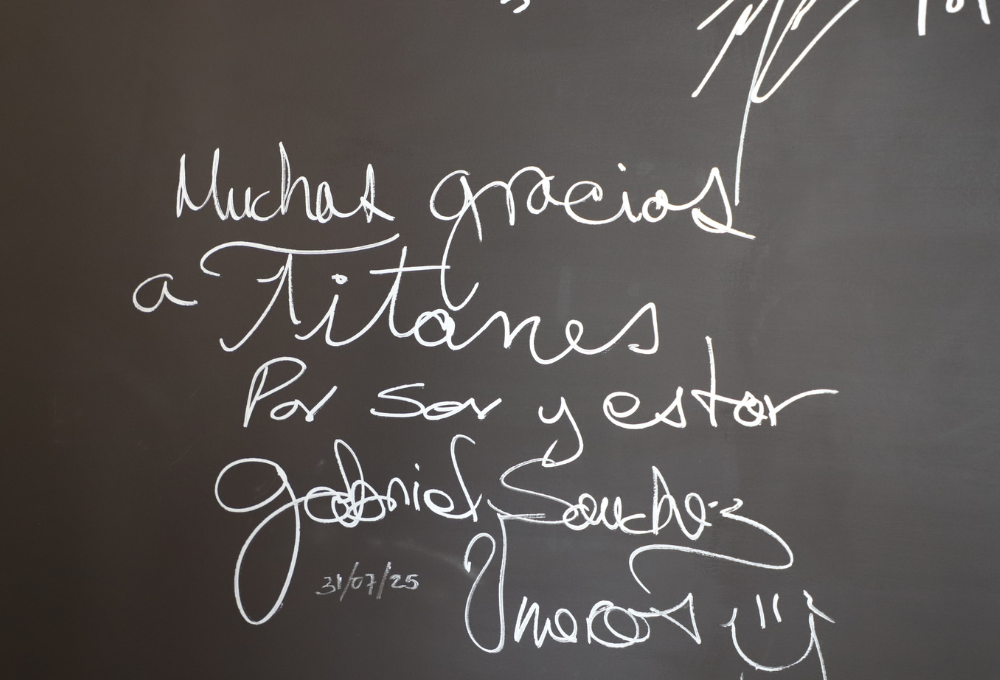 Muchas gracias
a Titanes
Por ser y estar
Gabriel Sanchez
31/07/25